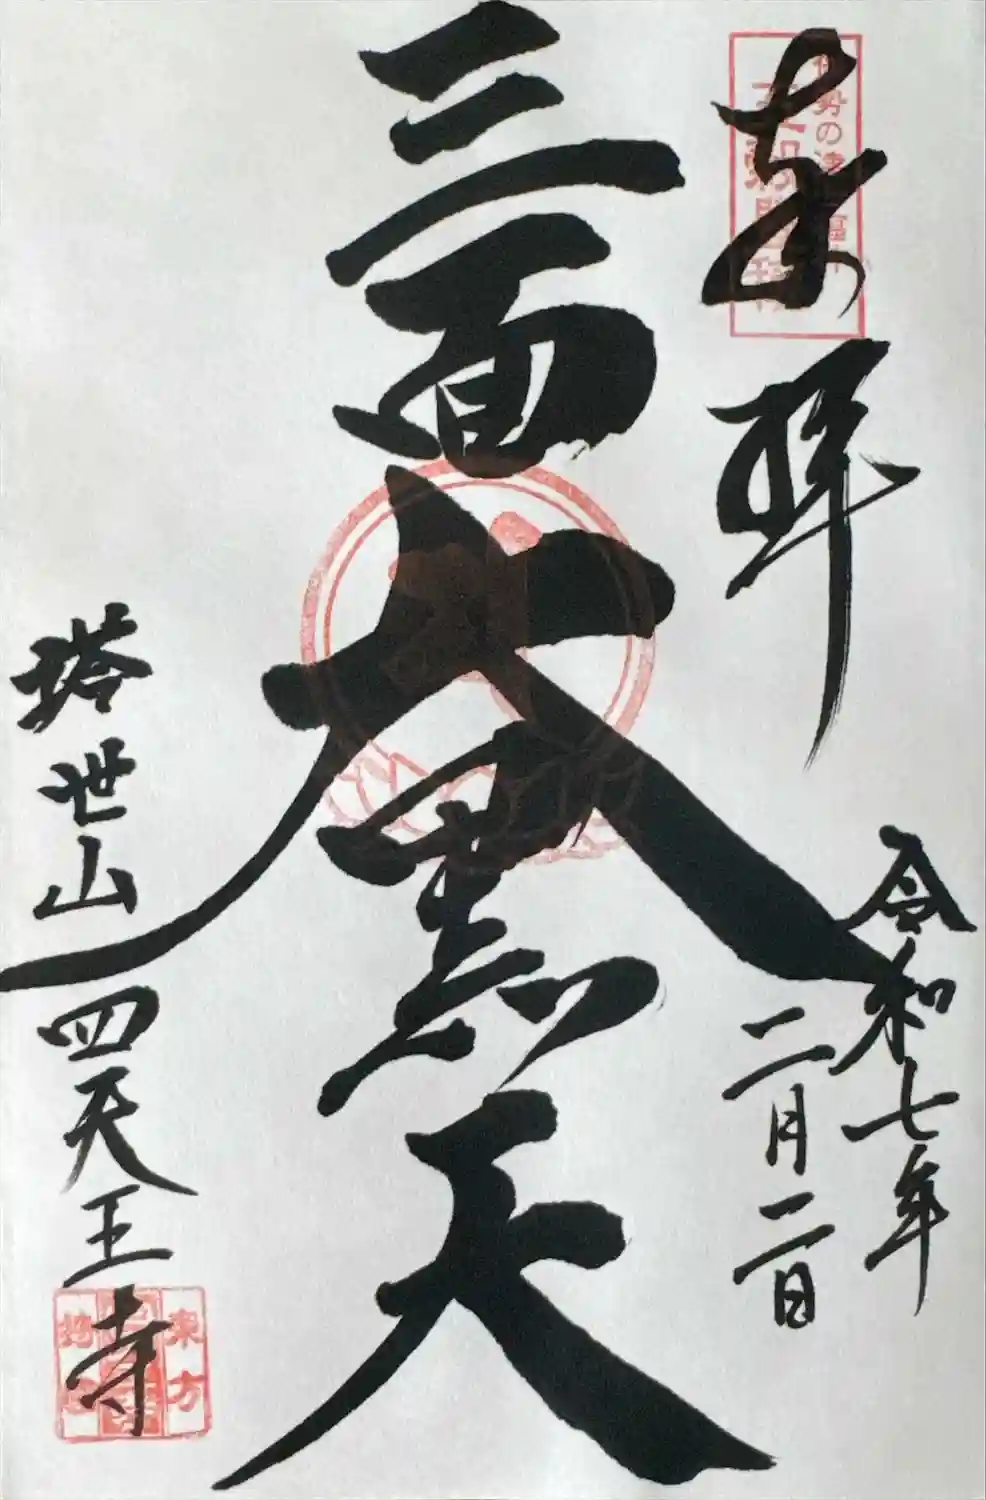 奉拝
令和七年
二月二日
三面大黒天
塔世山四天王寺
東方